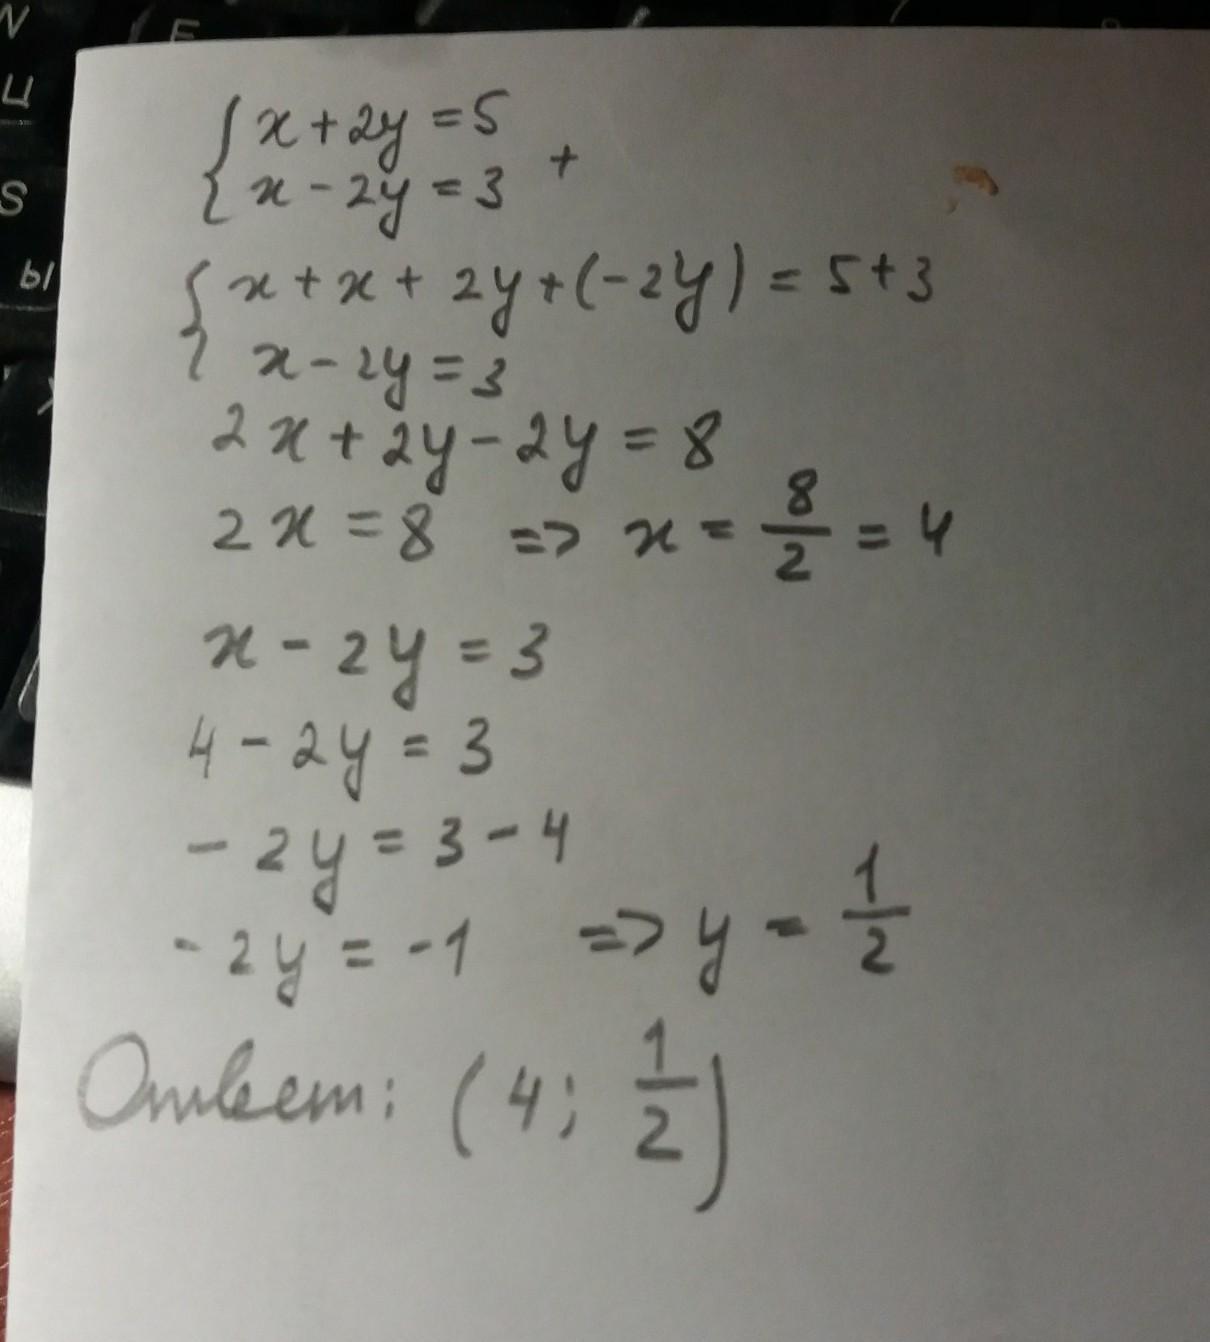 N
E
Ц
S
Ы
{ x + 2y = 5
{ x - 2y = 3 +
{ x + x + 2y + (-2y) = 5 + 3
x - 2y = 3
2x + 2y - 2y = 8
2x = 8 => x = 8/2 = 4
x - 2y = 3
4 - 2y = 3
- 2y = 3 - 4
- 2y = -1 => y = 1/2
Ответ: (4; 1/2)